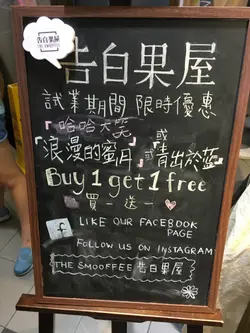 告白果屋
THE SMOOFFEE
告白果屋
試業期間 限時優惠
『哈哈大笑』
或
『浪漫的蜜月』或『青出於蓝』
Buy 1 get 1 free
買一送一
LIKE OUR FACEBOOK
PAGE
FOLLOW US ON INSTAGRAM
THE SMOOFFEE 告白果屋